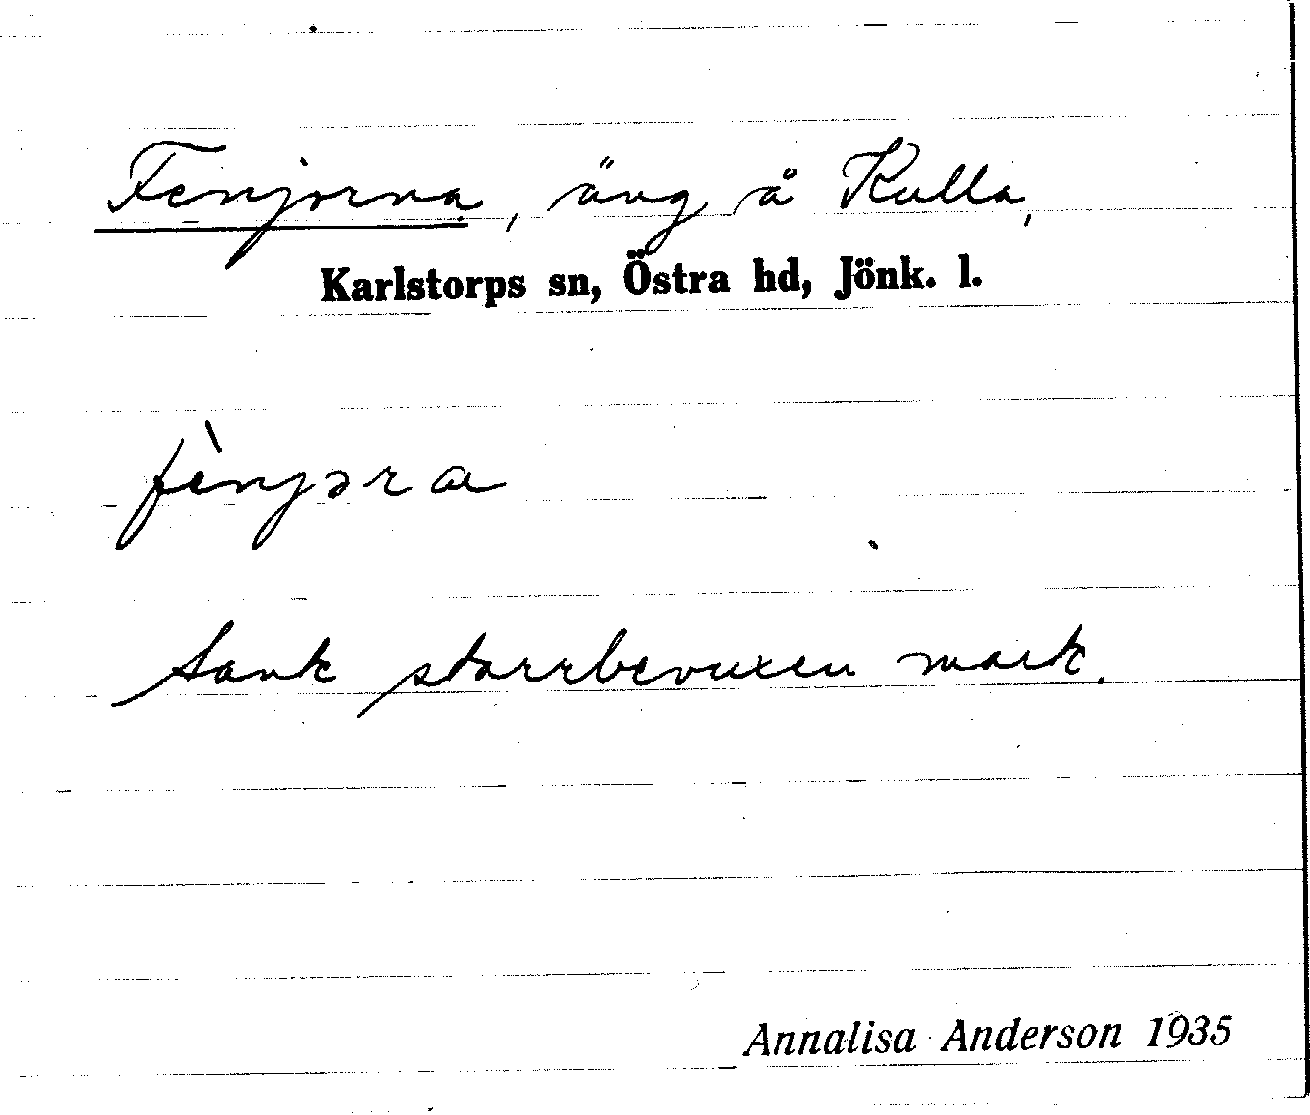 Fenjorna, äng å Kulla,
Karlstorps sn, Östra hd, Jönk. l.
fènjɔra
Sank starrbevuxen mark.
Annalisa Anderson 1935